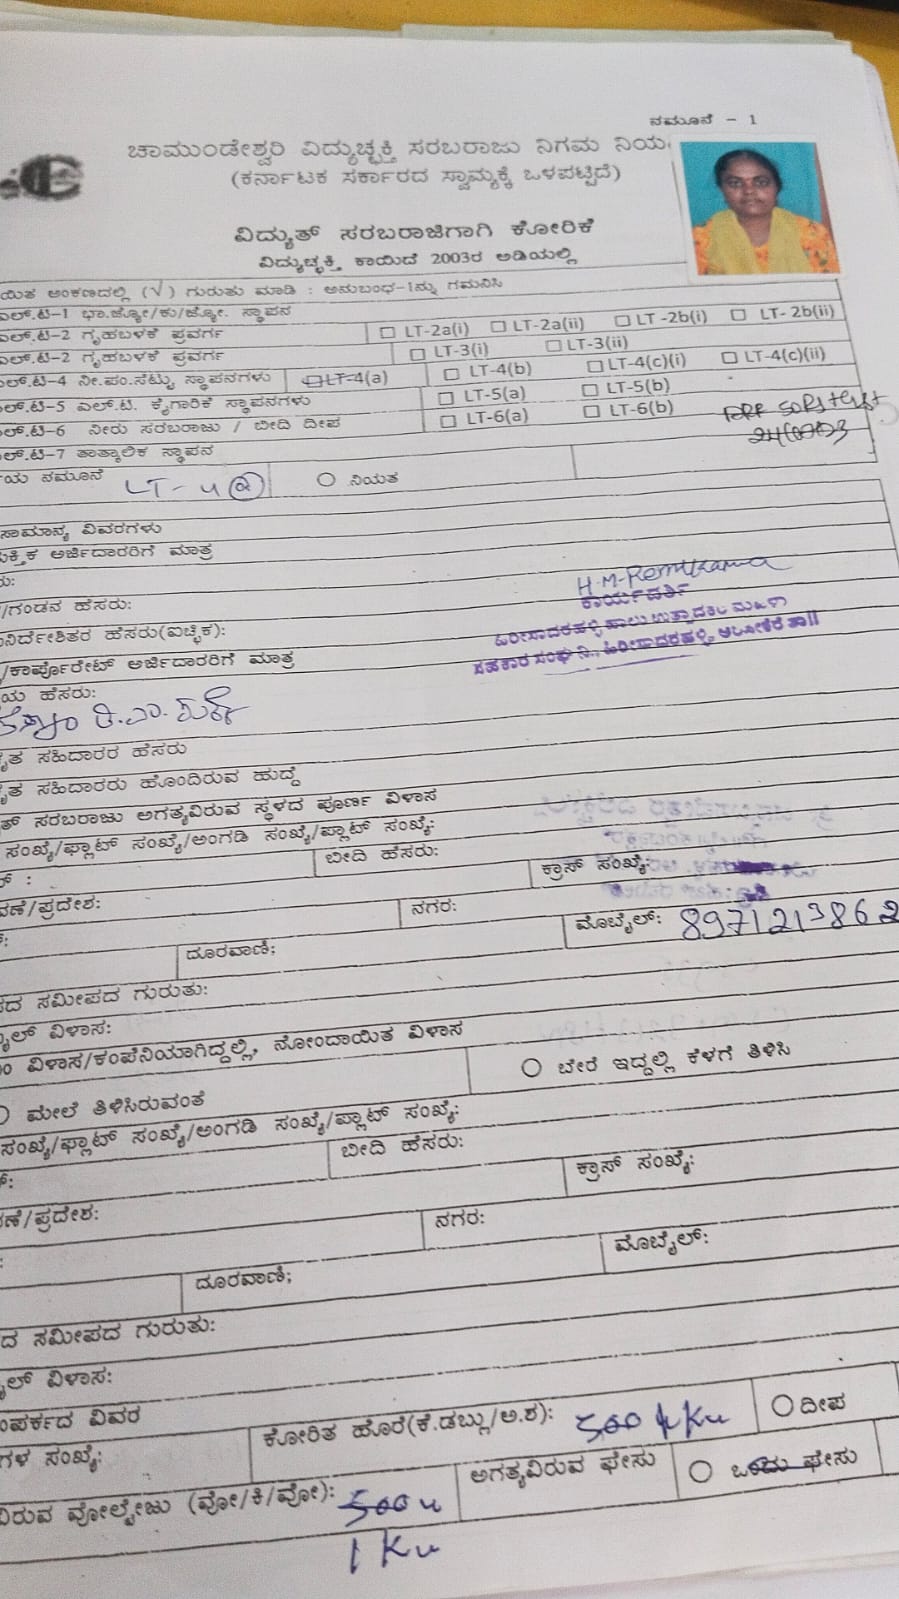 ನಮೂನೆ - 1
ಚಾಮುಂಡೇಶ್ವರಿ ವಿದ್ಯುಚ್ಛಕ್ತಿ ಸರಬರಾಜು ನಿಗಮ ನಿಯ
(ಕರ್ನಾಟಕ ಸರ್ಕಾರದ ಸ್ವಾಮ್ಯಕ್ಕೆ ಒಳಪಟ್ಟಿದೆ)
ವಿದ್ಯುತ್ ಸರಬರಾಜಿಗಾಗಿ ಕೋರಿಕೆ
ವಿದ್ಯುಚ್ಛಕ್ತಿ ಕಾಯಿದೆ 2003ರ ಅಡಿಯಲ್ಲಿ
ಯಿತ ಅಂಕಣದಲ್ಲಿ (√) ಗುರುತು ಮಾಡಿ : ಅನುಬಂಧ-1ನ್ನು ಗಮನಿಸಿ
ಎಲ್.ಟಿ-1 ಭಾ.ಜ್ಯೋ/ಕು/ಜ್ಯೋ. ಸ್ಥಾಪನ
ಎಲ್.ಟಿ-2 ಗೃಹಬಳಕೆ ಪ್ರವರ್ಗ LT-2a(i) LT-2a(ii) LT -2b(i) LT- 2b(ii)
ಎಲ್.ಟಿ-2 ಗೃಹಬಳಕೆ ಪ್ರವರ್ಗ LT-3(i) LT-3(ii)
ಎಲ್.ಟಿ-4 ನೀ.ಪಂ.ಸೆಟ್ಟು ಸ್ಥಾಪನಗಳು LT-4(a) LT-4(b) LT-4(c)(i) LT-4(c)(ii)
ಎಲ್.ಟಿ-5 ಎಲ್.ಟಿ. ಕೈಗಾರಿಕೆ ಸ್ಥಾಪನಗಳು LT-5(a) LT-5(b)
ಎಲ್.ಟಿ-6 ನೀರು ಸರಬರಾಜು / ಬೀದಿ ದೀಪ LT-6(a) LT-6(b)
ಎಲ್.ಟಿ-7 ತಾತ್ಕಾಲಿಕ ಸ್ಥಾಪನ
ಯ ನಮೂನೆ LT-4(a) ನಿಯತ
ಸಾಮಾನ್ಯ ವಿವರಗಳು
ಅರ್ಜಿದಾರರಿಗೆ ಮಾತ್ರ
ರು:
/ಗಂಡನ ಹೆಸರು:
H.M-Renukamma
ಕಾರ್ಯದರ್ಶಿ
ನಿರ್ದೇಶಿತರ ಹೆಸರು(ಐಚ್ಛಿಕ):
ಹಾಲು ಉತ್ಪಾದಕರ ಮಹಿಳಾ
/ಕಾರ್ಪೊರೇಟ್ ಅರ್ಜಿದಾರರಿಗೆ ಮಾತ್ರ
ಸಹಕಾರ ಸಂಘ ನಿ.,
ಯ ಹೆಸರು:
ೃತ ಸಹಿದಾರರ ಹೆಸರು
ೃತ ಸಹಿದಾರರು ಹೊಂದಿರುವ ಹುದ್ದೆ
ತ್ ಸರಬರಾಜು ಅಗತ್ಯವಿರುವ ಸ್ಥಳದ ಪೂರ್ಣ ವಿಳಾಸ
ಸಂಖ್ಯೆ/ಫ್ಲಾಟ್ ಸಂಖ್ಯೆ/ಅಂಗಡಿ ಸಂಖ್ಯೆ/ಪ್ಲಾಟ್ ಸಂಖ್ಯೆ:
ಬೀದಿ ಹೆಸರು: ಕ್ರಾಸ್ ಸಂಖ್ಯೆ:
ವಣೆ/ಪ್ರದೇಶ: ನಗರ:
ದೂರವಾಣಿ; ಮೊಬೈಲ್: 8971213862
ದ ಸಮೀಪದ ಗುರುತು:
ೈಲ್ ವಿಳಾಸ:
ವಿಳಾಸ/ಕಂಪೆನಿಯಾಗಿದ್ದಲ್ಲಿ, ನೋಂದಾಯಿತ ವಿಳಾಸ
ಮೇಲೆ ತಿಳಿಸಿರುವಂತೆ ಬೇರೆ ಇದ್ದಲ್ಲಿ ಕೆಳಗೆ ತಿಳಿಸಿ
ಸಂಖ್ಯೆ/ಫ್ಲಾಟ್ ಸಂಖ್ಯೆ/ಅಂಗಡಿ ಸಂಖ್ಯೆ/ಪ್ಲಾಟ್ ಸಂಖ್ಯೆ:
ಬೀದಿ ಹೆಸರು: ಕ್ರಾಸ್ ಸಂಖ್ಯೆ:
ಣೆ/ಪ್ರದೇಶ: ನಗರ:
ದೂರವಾಣಿ; ಮೊಬೈಲ್:
ದ ಸಮೀಪದ ಗುರುತು:
ೈಲ್ ವಿಳಾಸ:
ಂಪರ್ಕದ ವಿವರ
ಗಳ ಸಂಖ್ಯೆ: ಕೋರಿತ ಹೊರೆ(ಕೆ.ಡಬ್ಲು/ಅ.ಶ): ದೀಪ
ವಿರುವ ವೋಲ್ಟೇಜು (ವೋ/ಕಿ/ವೋ): ಅಗತ್ಯವಿರುವ ಫೇಸು ಒಂದು ಫೇಸು